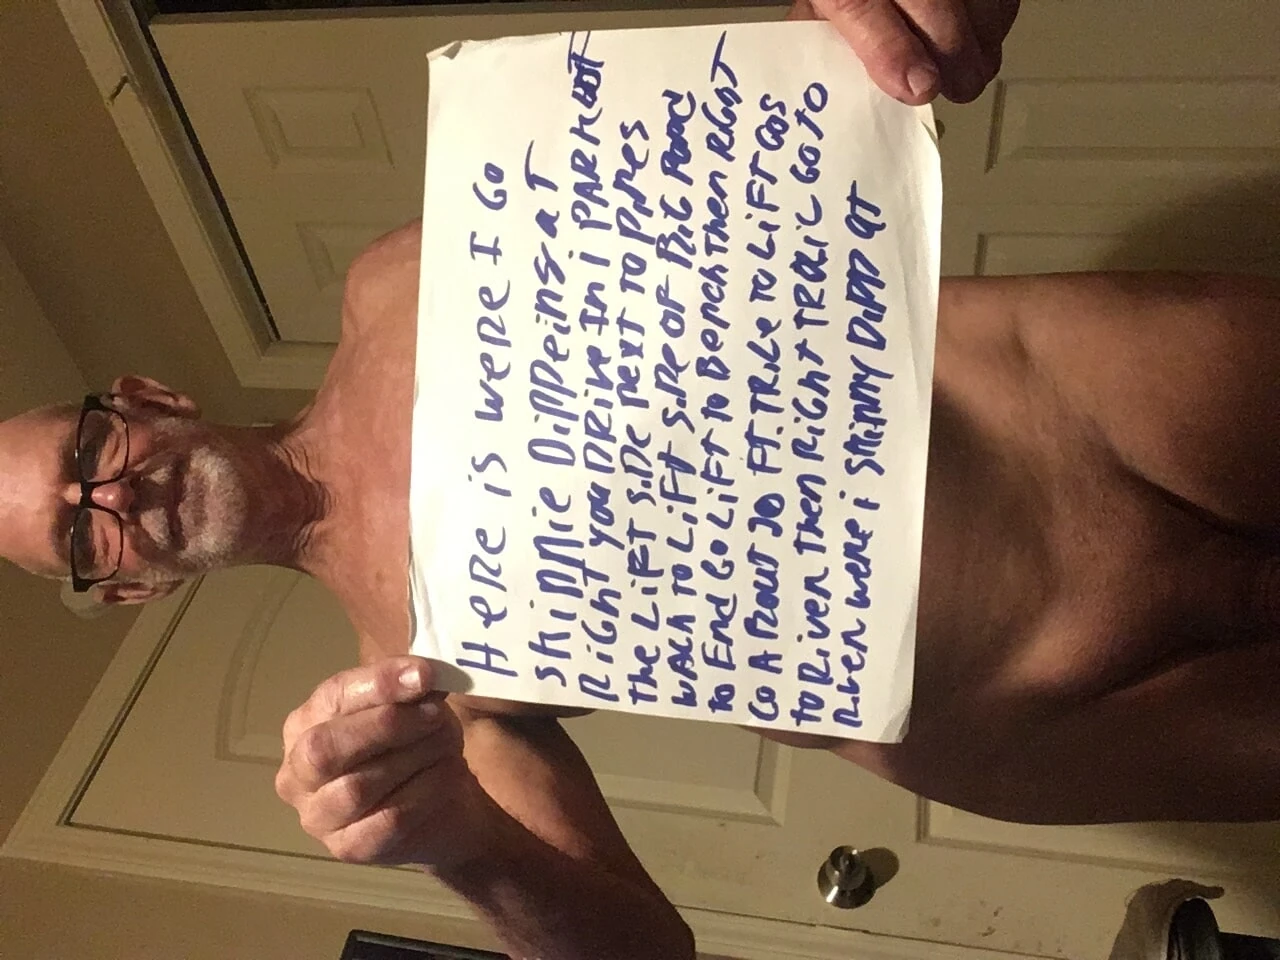 Here is were I Go
skinnie Dippeing at
Right you Drive In i PARK
the LiFt SiDe next TO PiPes
WALK TO LiFT SiDe OF BiG ROAD
to End Go LiFT to Bench Then RiGhT
Go A BOUT 20 FT. TRiLe To LiFT Gos
to RiveR Then RiGht TRAiL Go TO
RiveR were i Skinny DiPP at